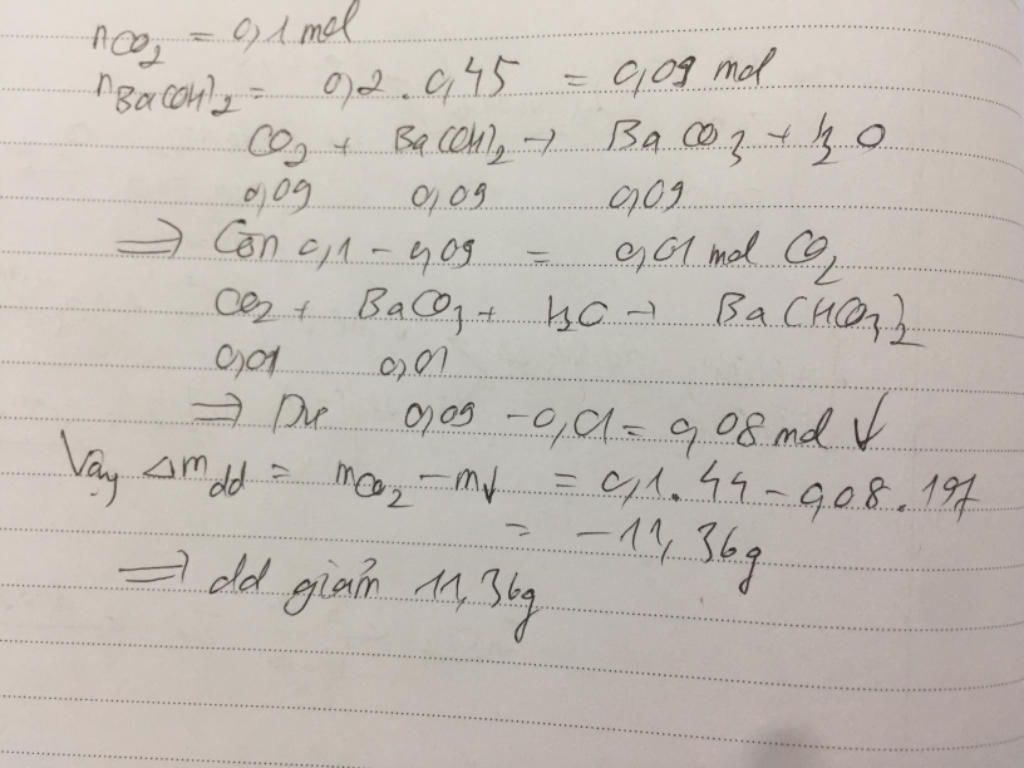 nCO2 = 0,1 mol
nBa(OH)2 = 0,2 . 0,45 = 0,09 mol
CO2 + Ba(OH)2 → BaCO3 + H2O
0,09 0,09 0,09
⇒ Còn 0,1 - 0,09 = 0,01 mol CO2
CO2 + BaCO3 + H2O → Ba(HCO3)2
0,01 0,01
⇒ Dư 0,09 - 0,01 = 0,08 mol ↓
Vậy Δmdd = mCO2 - m↓ = 0,1 . 44 - 0,08 . 197
= -11,36g
⇒ dd giảm 11,36g